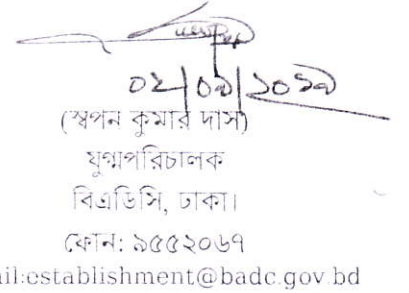 ০২/০৯/২০১৯
(স্বপন কুমার দাস)
যুগ্মপরিচালক
বিএডিসি, ঢাকা।
ফোন: ৯৫৫২০৬৭
ail:establishment@badc.gov.bd